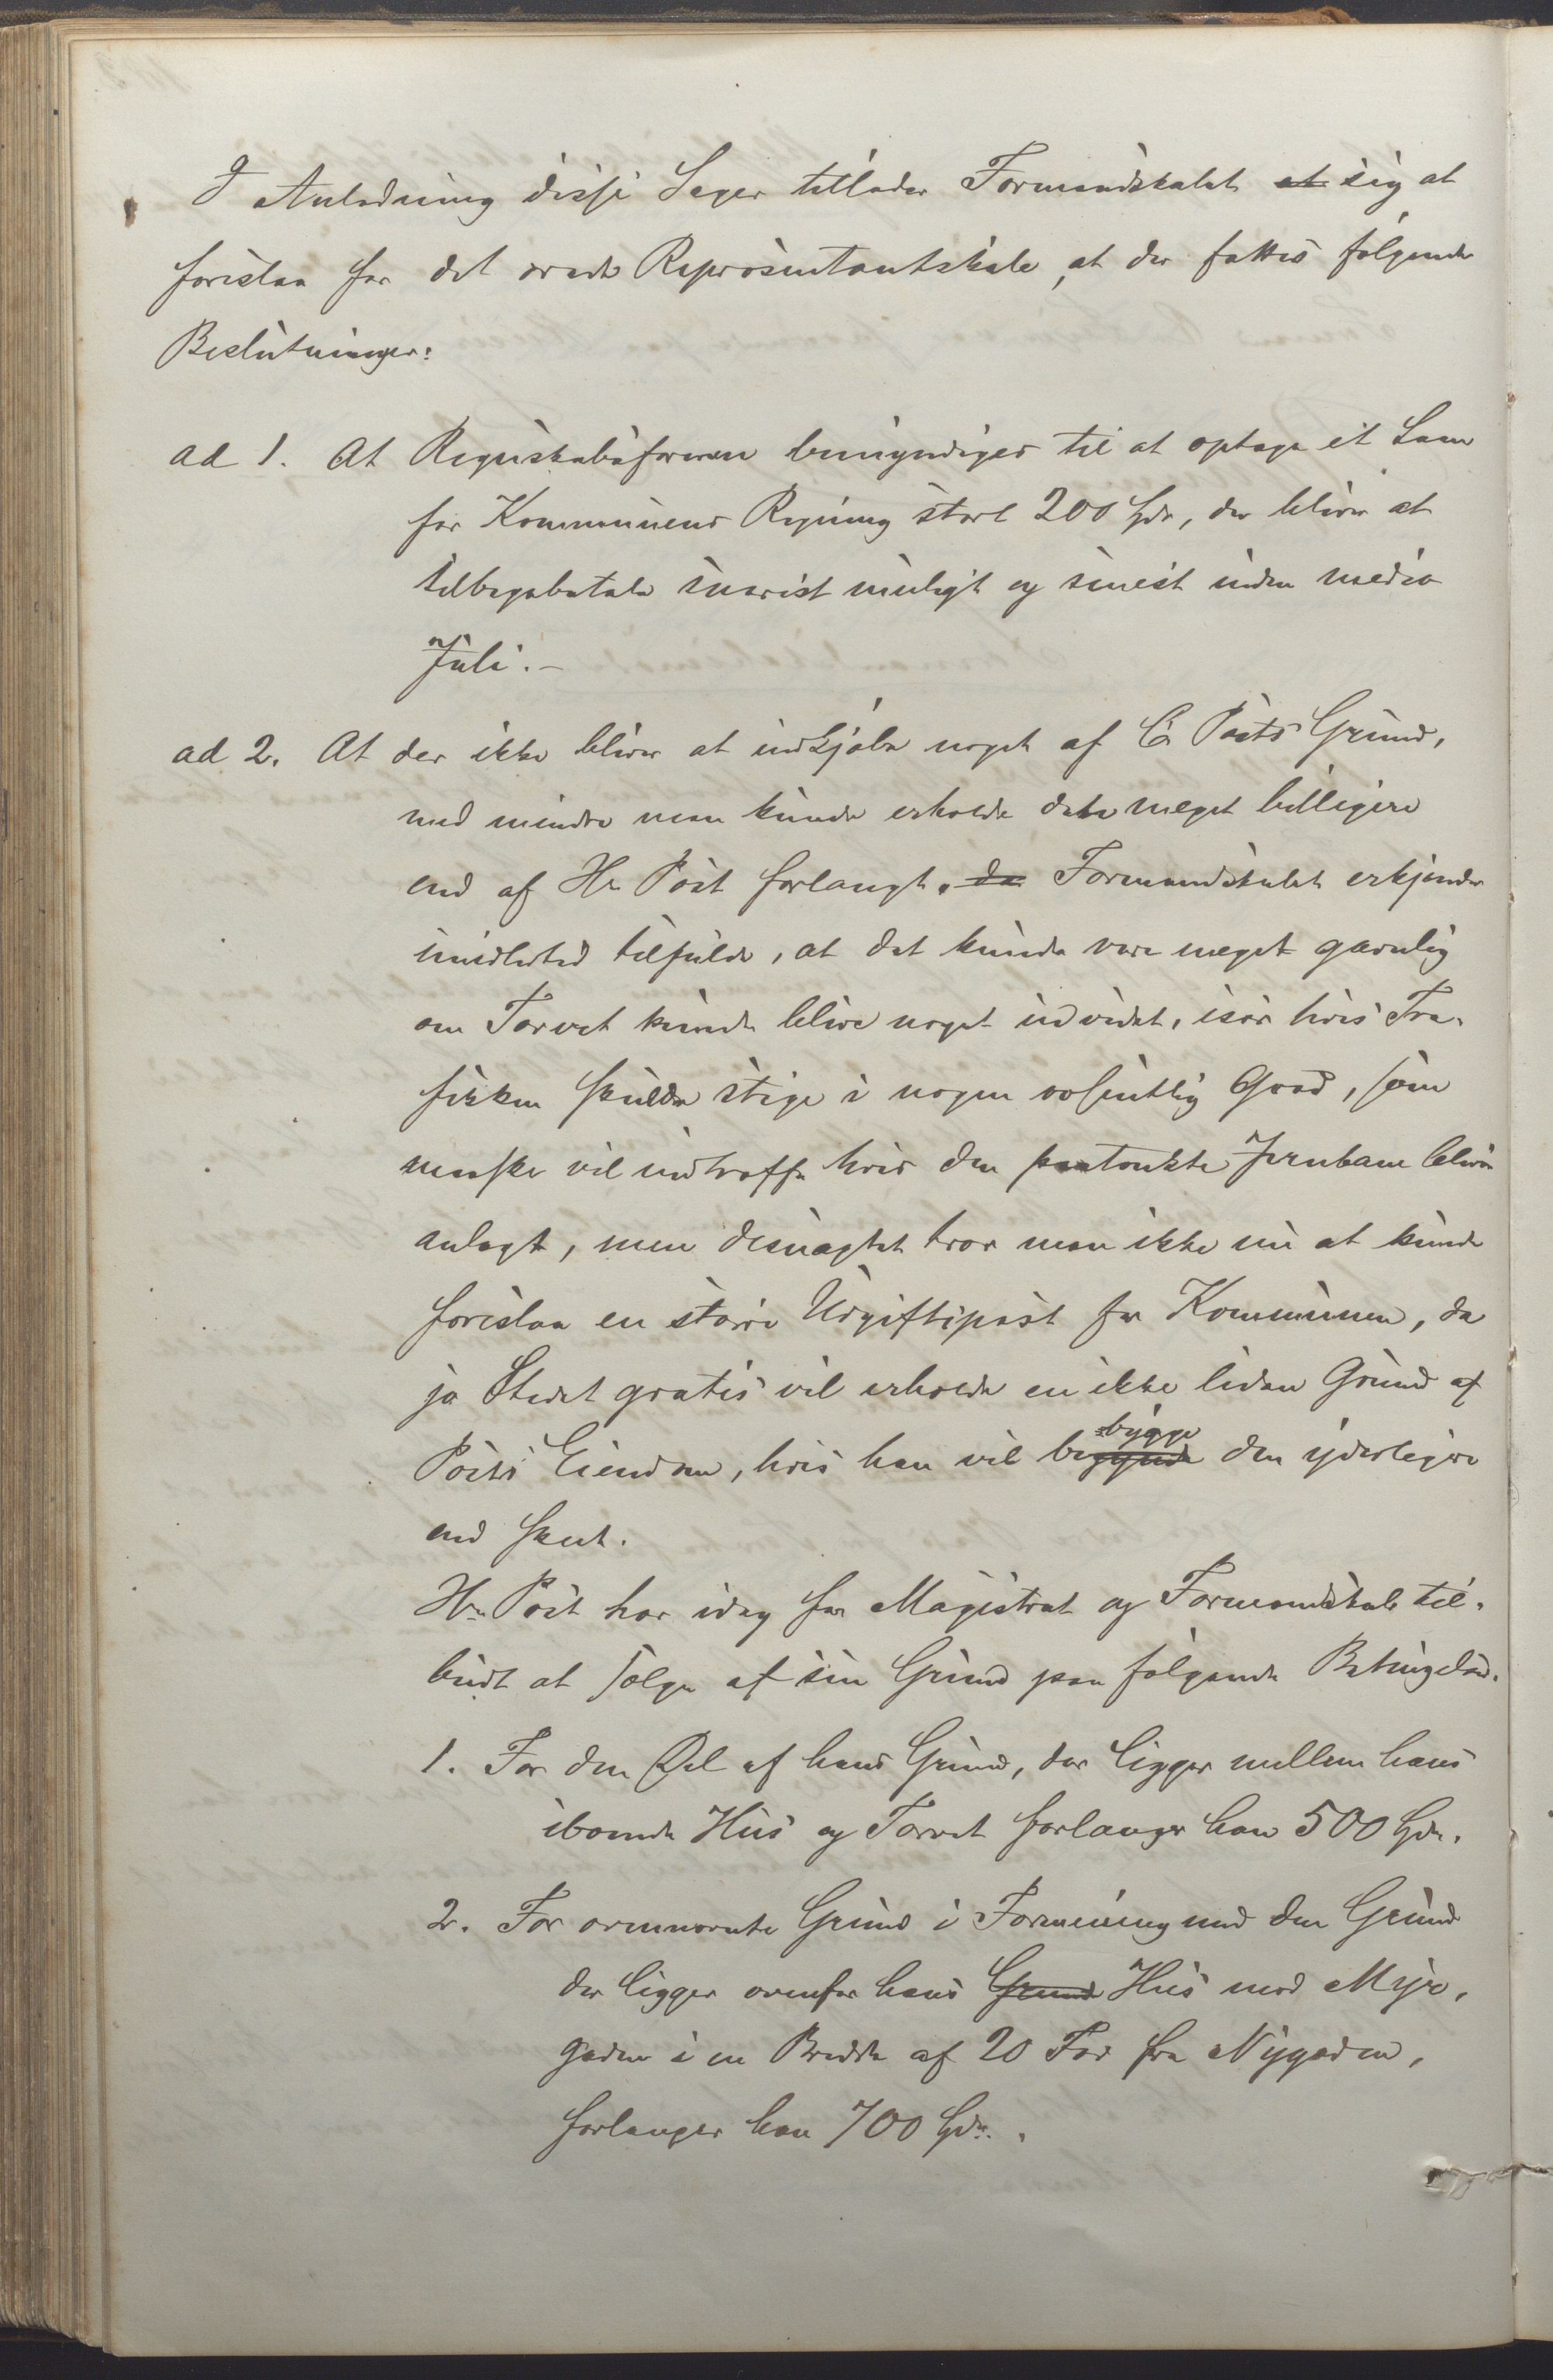 I Anledning disse Sager tillader Formandskabet at sig at
foreslaa for det ærede Repræsentantskab, at der fattes følgende
Beslutninger:
ad 1. At Regnskabsføreren bemyndiges til at optage et Laan
for Kommunens Regning stort 200 Spd, der bliver at
tilbagebetale snarest muligt og senest inden medio
Juli. –
ad 2. At der ikke bliver at indkjøbe noget af C. Posts Grund,
med mindre man kunde erholde dette meget billigere
end af Hr Post forlangt. da Formandskabet erkjender
imidlertid tilfulde, at det kunde være meget gavnlig
om Torvet kunde blive noget udvidet, især hvis Tra-
fikken skulde stige i nogen væsentlig Grad, som
maaske vil indtræffe hvis den paatænkte Jernbane bliver
anlagt, men desuagtet tror man ikke nu at kunde
foreslaa en større Udgiftspost for Kommunen, da
jo Stedet gratis vil erholde en ikke liden Grund af
Posts Eiendom, hvis han vil begynde bygge den yderligere
end skeet.
Hr Post har idag for Magistrat og Formandskab til-
budt at sælge af sin Grund paa følgende Betingelser.
1. For den Del af hans Grund, der ligger mellem hans
iboende Hus og Torvet forlanger han 500 Spd.
2. For ovennævnte Grund i Forening med den Grund
der ligger ovenfor hans Grund Hus mod Myr-
gaden i en Bredde af 20 Fod fra Nygaden,
forlanger han 700 Spd.